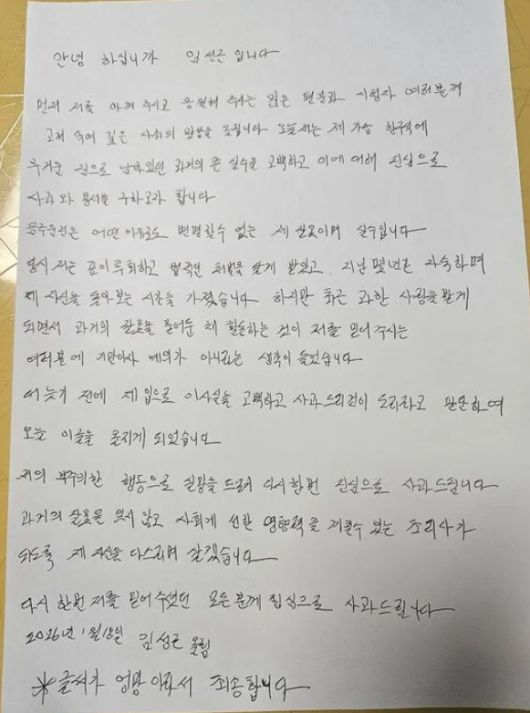 안녕 하십니까 임성근 입니다
먼저 저를 아껴 주시고 응원해 주시는 많은 팬분과 시청자 여러분께
고개 숙여 깊은 사죄의 말씀을 올립니다 오늘 저는 제 가슴 한구석에
무거운 짐으로 남아있던 과거의 큰 실수를 고백하고 이에 대해 진심으로
사죄와 용서를 구하고자 합니다
음주운전은 어떤 이유로도 변명할수 없는 제 잘못이며 실수입니다
당시 저는 깊이 후회하고 법적인 처벌을 달게 받았고, 지난 몇년간 자숙하며
제 자신을 돌아보는 시간을 가졌습니다 하지만 최근 과한 사랑을 받게
되면서 과거의 잘못을 묻어둔 채 활동하는 것이 저를 믿어 주시는
여러분에 기만이자 예의가 아니라는 생각이 들었습니다
더 늦기 전에 제 입으로 이사실을 고백하고 사과 드리는것이 도리라고 판단하여
오늘 이글을 올리게 되었습니다
저의 부주의한 행동으로 실망을 드려 다시한번 진심으로 사과드립니다
과거의 잘못을 잊지 않고 사회에 선한 영향력을 끼칠수 있는 조리사가
되도록 제 자신을 다스리며 살겠습니다
다시 한번 저를 믿어 주셨던 모든분께 진심으로 사과드립니다
2026년 1월18일 임성근 올림
*글씨가 엉망 이라서 죄송합니다